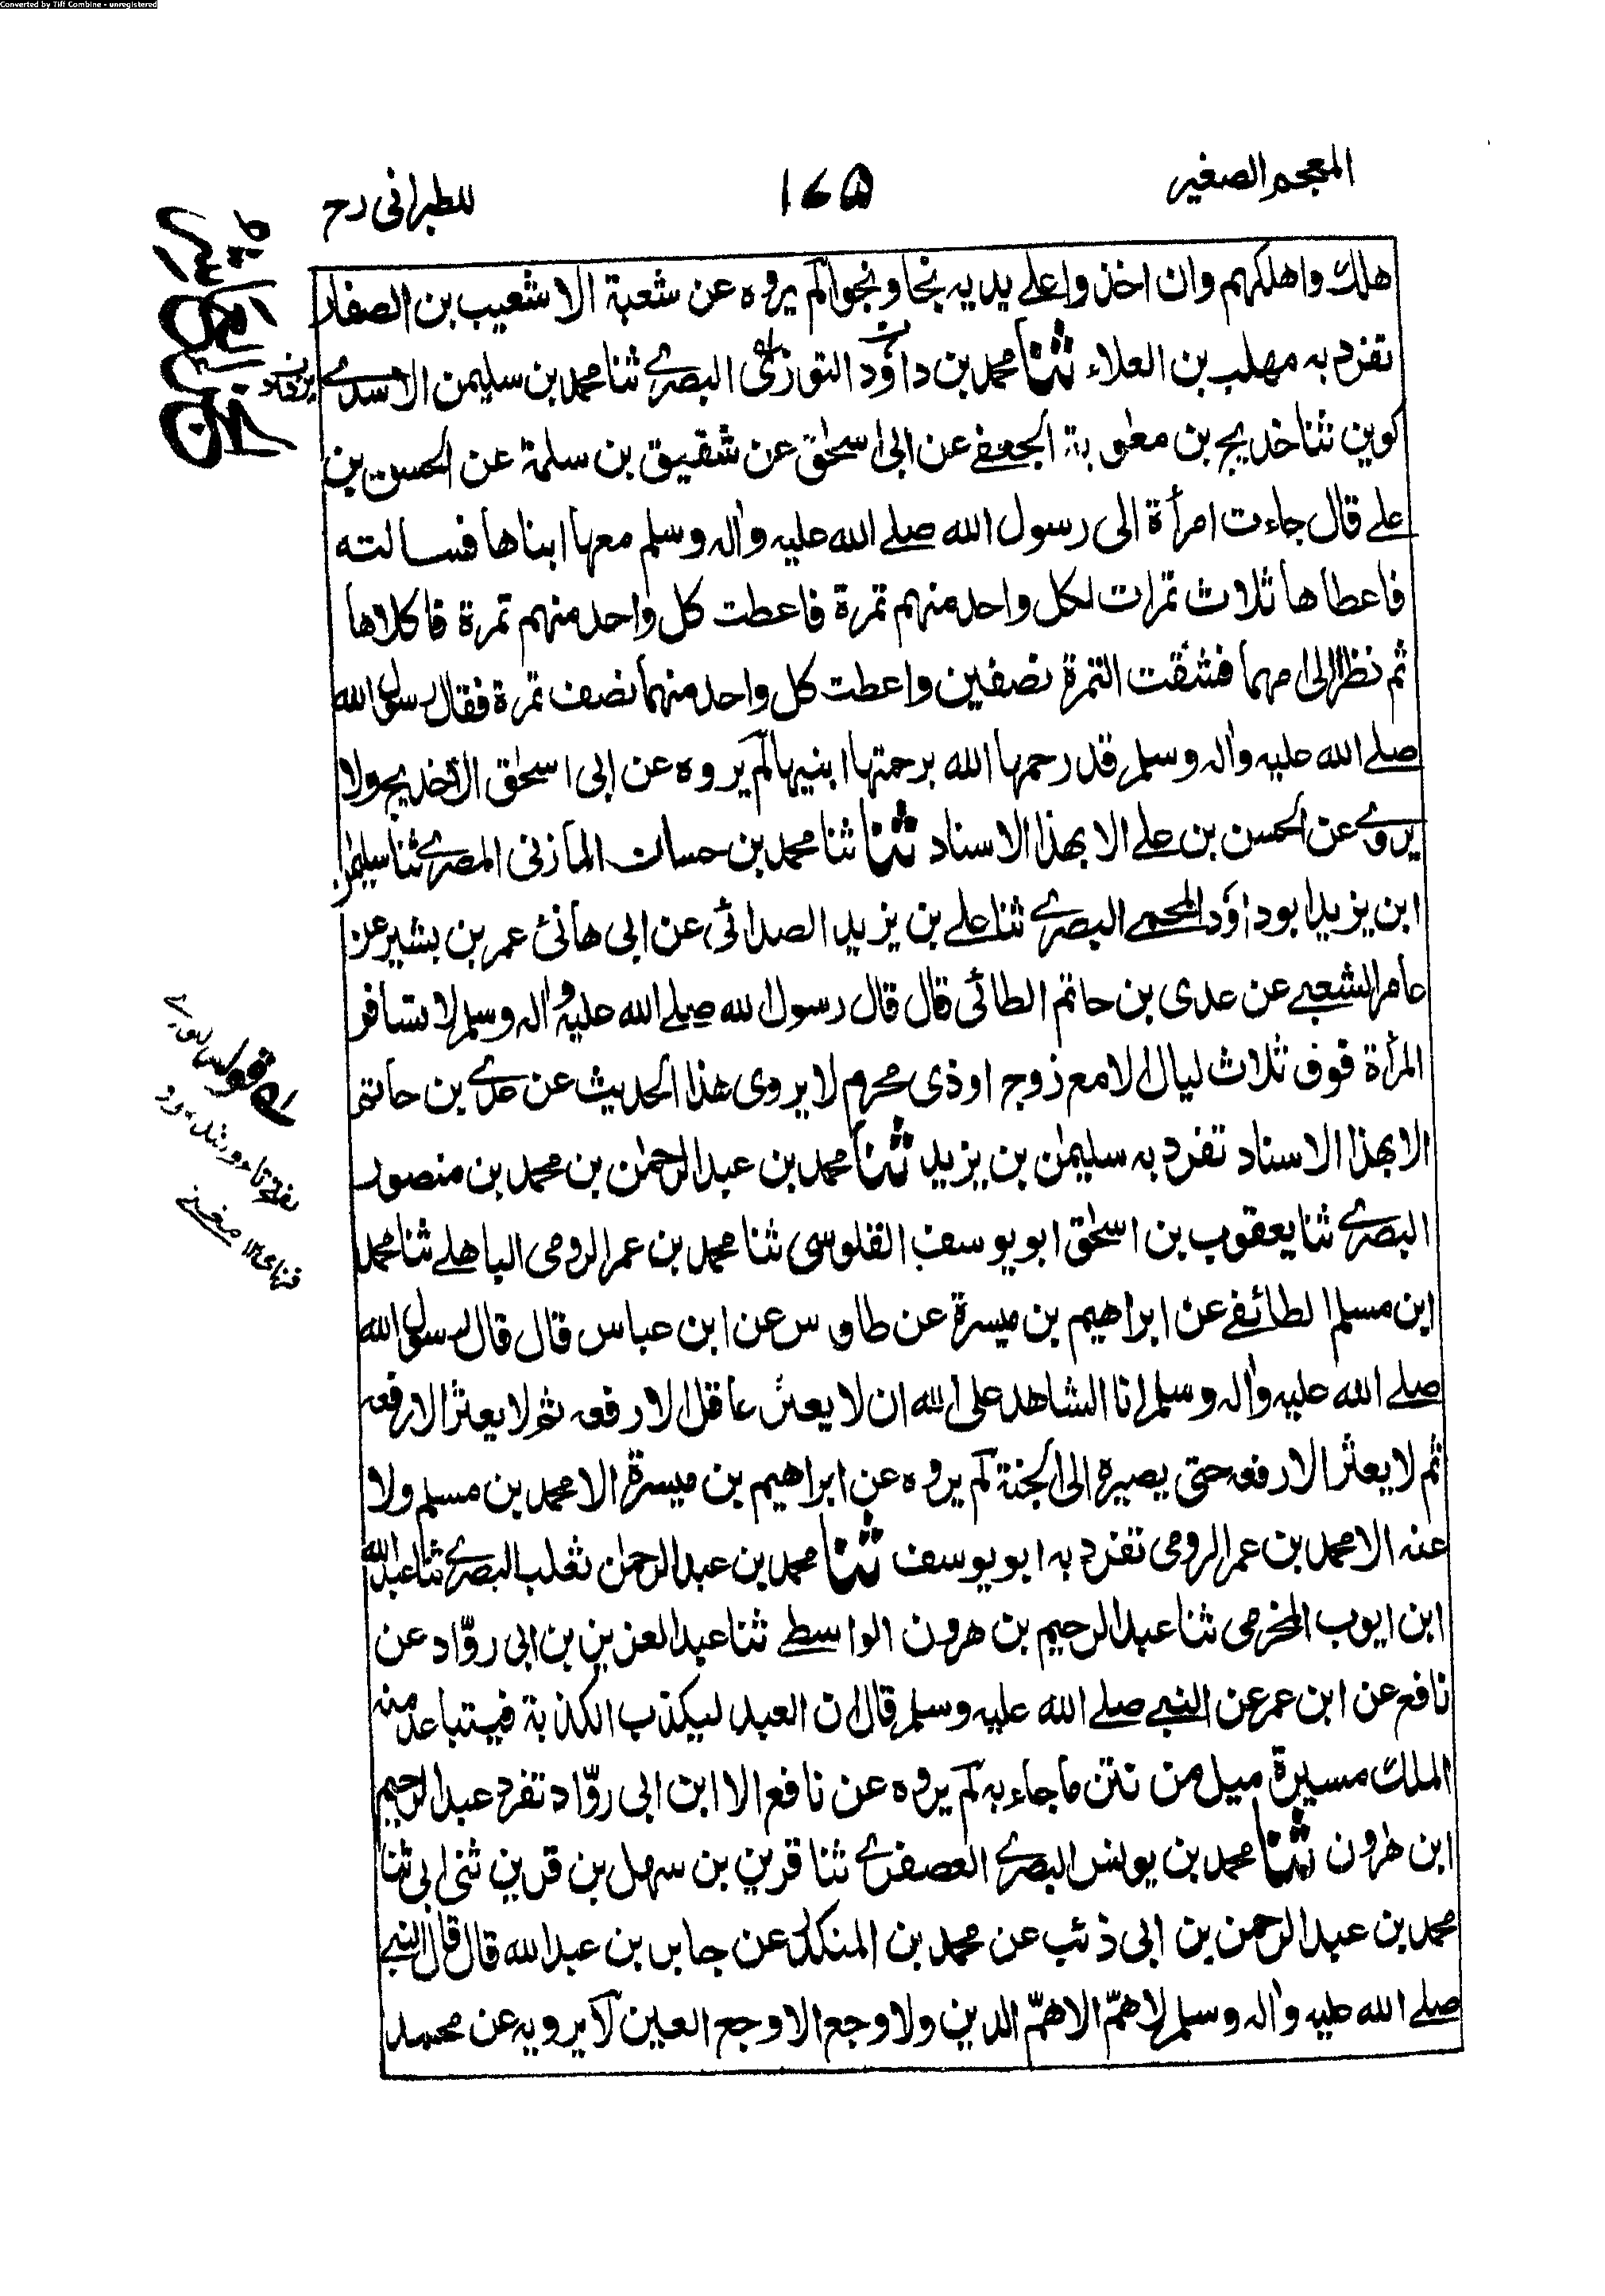 Converted by Tiff Combine - unregistered
المعجم الصغير
١٧٥
للطبرانى رح
هلك واهلكهم وان اخذوا على يديه نجا ونجوا لم يروه عن شعبة الا شعيب بن الصفار
تفرد به مهلب بن العلاء ثنا محمد بن داؤد التوزى البصرے ثنا محمد بن سليمن الاسدے
لوين ثنا خديج بن معوية الجعفے عن ابى اسحٰق عن شقيق بن سلمة عن الحسن بن
علے قال جاءت امرأة الى رسول الله صلے الله عليه واٰله وسلم معها ابناها فسالته
فاعطاها ثلاث تمرات لكل واحد منهم تمرة فاعطت كل واحد منهم تمرة فاكلاها
ثم نظرا الى امهما فشقت التمرة نصفين واعطت كل واحد منهما نصف تمرة فقال رسول الله
صلے الله عليه واٰله وسلم قد رحمها الله برحمتها ابنيها لم يروه عن ابى اسحٰق الا خديج ولا
يروے عن الحسن بن علے الا بهذا الاسناد ثنا ثنا محمد بن حسان المازنى المصرے ثنا سليمٰن
ابن يزيد ابو داؤد المحمے البصرے ثنا علے بن يزيد الصدائى عن ابى هانئ عمر بن بشير عن
عامر الشعبے عن عدى بن حاتم الطائى قال قال رسول الله صلے الله عليه واٰله وسلم لا تسافر
المرأة فوق ثلاث ليال الا مع زوج او ذى محرم لا يروى هذا الحديث عن عدے بن حاتم
الا بهذا الاسناد تفرد به سليمٰن بن يزيد ثنا محمد بن عبد الرحمٰن بن محمد بن منصور
البصرے ثنا يعقوب بن اسحٰق ابو يوسف القلوسى ثنا محمد بن عمر الرومى الباهلے ثنا محمد
ابن مسلم الطائفے عن ابراهيم بن ميسرة عن طاوس عن ابن عباس قال قال رسول الله
صلے الله عليه واٰله وسلم انا الشاهد على الله ان لا يعثر عاقل الا رفعه ثم لا يعثر الا رفعه
ثم لا يعثر الا رفعه حتى يصيره الى الجنة لم يروه عن ابراهيم بن ميسرة الا محمد بن مسلم ولا
عنه الا محمد بن عمر الرومى تفرد به ابو يوسف ثنا محمد بن عبد الرحمٰن ثعلب البصرے ثنا عبد الله
ابن ايوب المخرمى ثنا عبد الرحيم بن هرون الواسطے ثنا عبد العزيز بن ابى روّاد عن
نافع عن ابن عمر عن النبے صلے الله عليه وسلم قال ان العبد ليكذب الكذبة فيتباعد منه
الملك مسيرة ميل من نتن ما جاء به لم يروه عن نافع الا ابن ابى روّاد تفرد عبد الرحيم
ابن هرون ثنا محمد بن يونس البصرے العصفرے ثنا قرين بن سهل بن قرين ثنى ابى ثنا
محمد بن عبد الرحمن بن ابى ذئب عن محمد بن المنكدر عن جابر بن عبد الله قال قال النبے
صلے الله عليه واٰله وسلم لا همّ الا همّ الدين ولا وجع الا وجع العين لا يرويه عن محمد